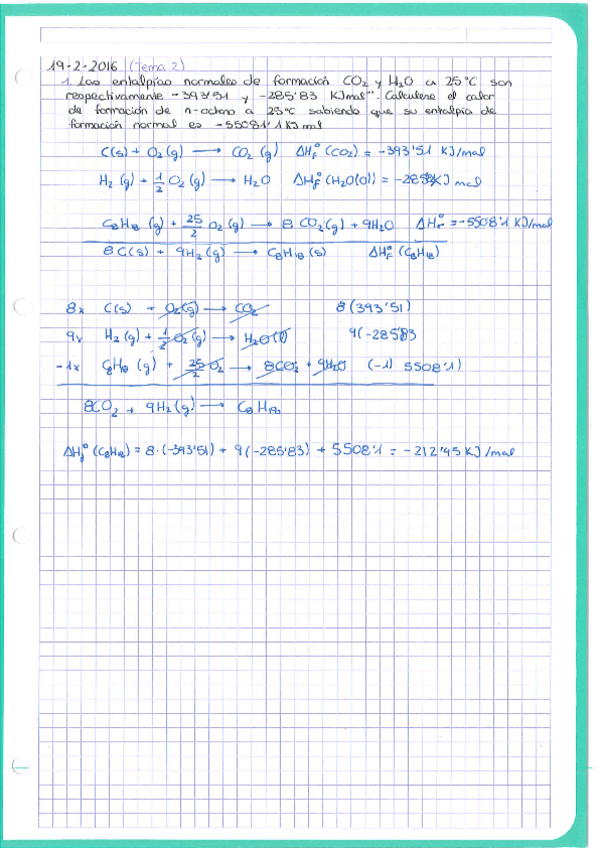 19-2-2016 (Tema 2)
1. Las entalpías normales de formación CO2 y H2O a 25°C son
respectivamente -393'51 y -285'83 KJmol⁻¹. Calculese el calor
de formación de n-octeno a 25°C sabiendo que su entalpía de
formación normal es -5508'1 KJ mol
C(s) + O2(g) → CO2 (g) ΔHf° (CO2) = -393'51 KJ/mol
H2 (g) + 1/2 O2(g) → H2O ΔHf° (H2O(l)) = -285'83 KJ mol
C8H18 (g) + 25/2 O2(g) → 8 CO2(g) + 9H2O ΔHr° = -5508'1 KJ/mol
8C(s) + 9H2(g) → C8H18(s) ΔHf° (C8H18)
8x C(s) + O2(g) → CO2 8(393'51)
9x H2(g) + 1/2 O2(g) → H2O(l) 9(-285'83
-1x C8H18 (g) + 25/2 O2 → 8CO2 + 9H2O (-1) 5508'1)
8CO2 + 9H2(g) → C8H18
ΔHf° (C8H18) = 8·(-393'51) + 9(-285'83) + 5508'1 = -212'45 KJ/mol